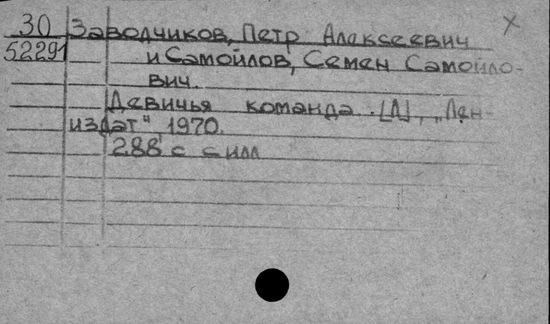 30 Заводчиков, Петр Алексеевич
52291 и Самойлов, Семен Самойло-
вич.
Девичья команда. [Л], „Лен-
издат“, 1970.
288 с с илл